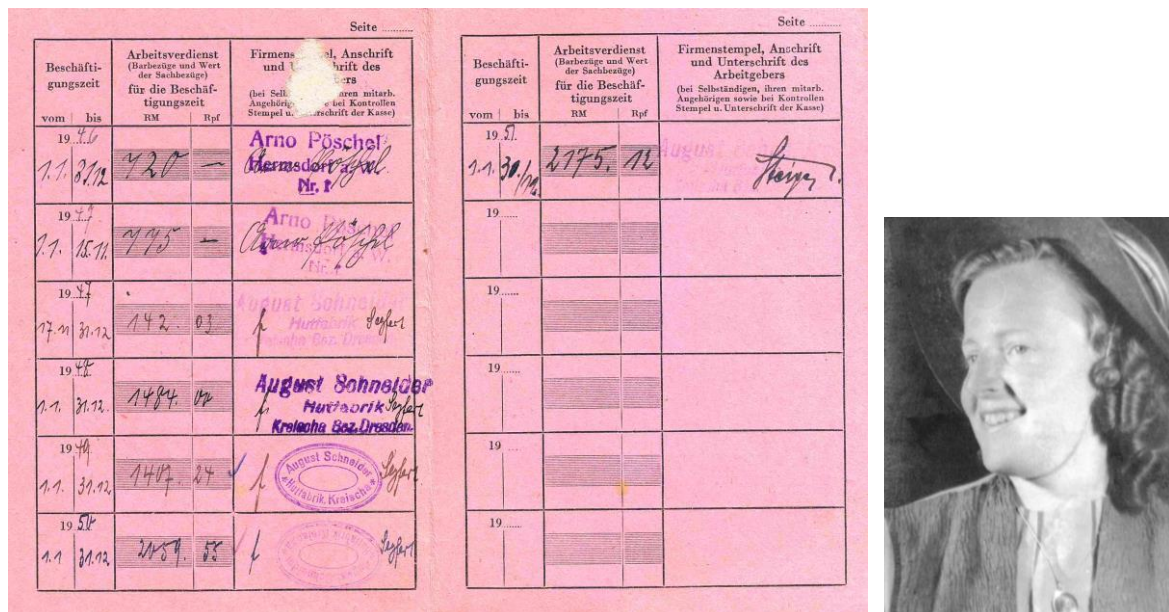 Seite ..........
Beschäfti-
gungszeit
vom | bis
Arbeitsverdienst
(Barbezüge und Wert
der Sachbezüge)
für die Beschäf-
tigungszeit
RM Rpf
Anschrift
und des
(bei mitarb.
Angehörigen bei Kontrollen
Stempel u. Unterschrift der Kasse)
1946
1.1. 31.12 720 —
Arno Pöschel
Hermsdorf
Nr. 1
1947
1.1. 15.11. 775 —
Arno
Nr. 1
1947
17.11 31.12. 142. 03
August Schneider
Hutfabrik
Bez. Dresden
Seyfert
1948
1.1. 31.12. 1484.
August Schneider
Hutfabrik Seyfert
Kreischa Bez. Dresden
1949
1.1. 31.12 1407. 24
August Schneider
Hutfabrik, Kreischa
Seyfert
1950
1.1 31.12 2059. 55
Seyfert
Seite ..........
Beschäfti-
gungszeit
vom | bis
Arbeitsverdienst
(Barbezüge und Wert
der Sachbezüge)
für die Beschäf-
tigungszeit
RM Rpf
Firmenstempel, Anschrift
und Unterschrift des
Arbeitgebers
(bei Selbständigen, ihren mitarb.
Angehörigen sowie bei Kontrollen
Stempel u. Unterschrift der Kasse)
1951
1.1. 30./12. 2175. 12
August
19......
19......
19......
19......
19......